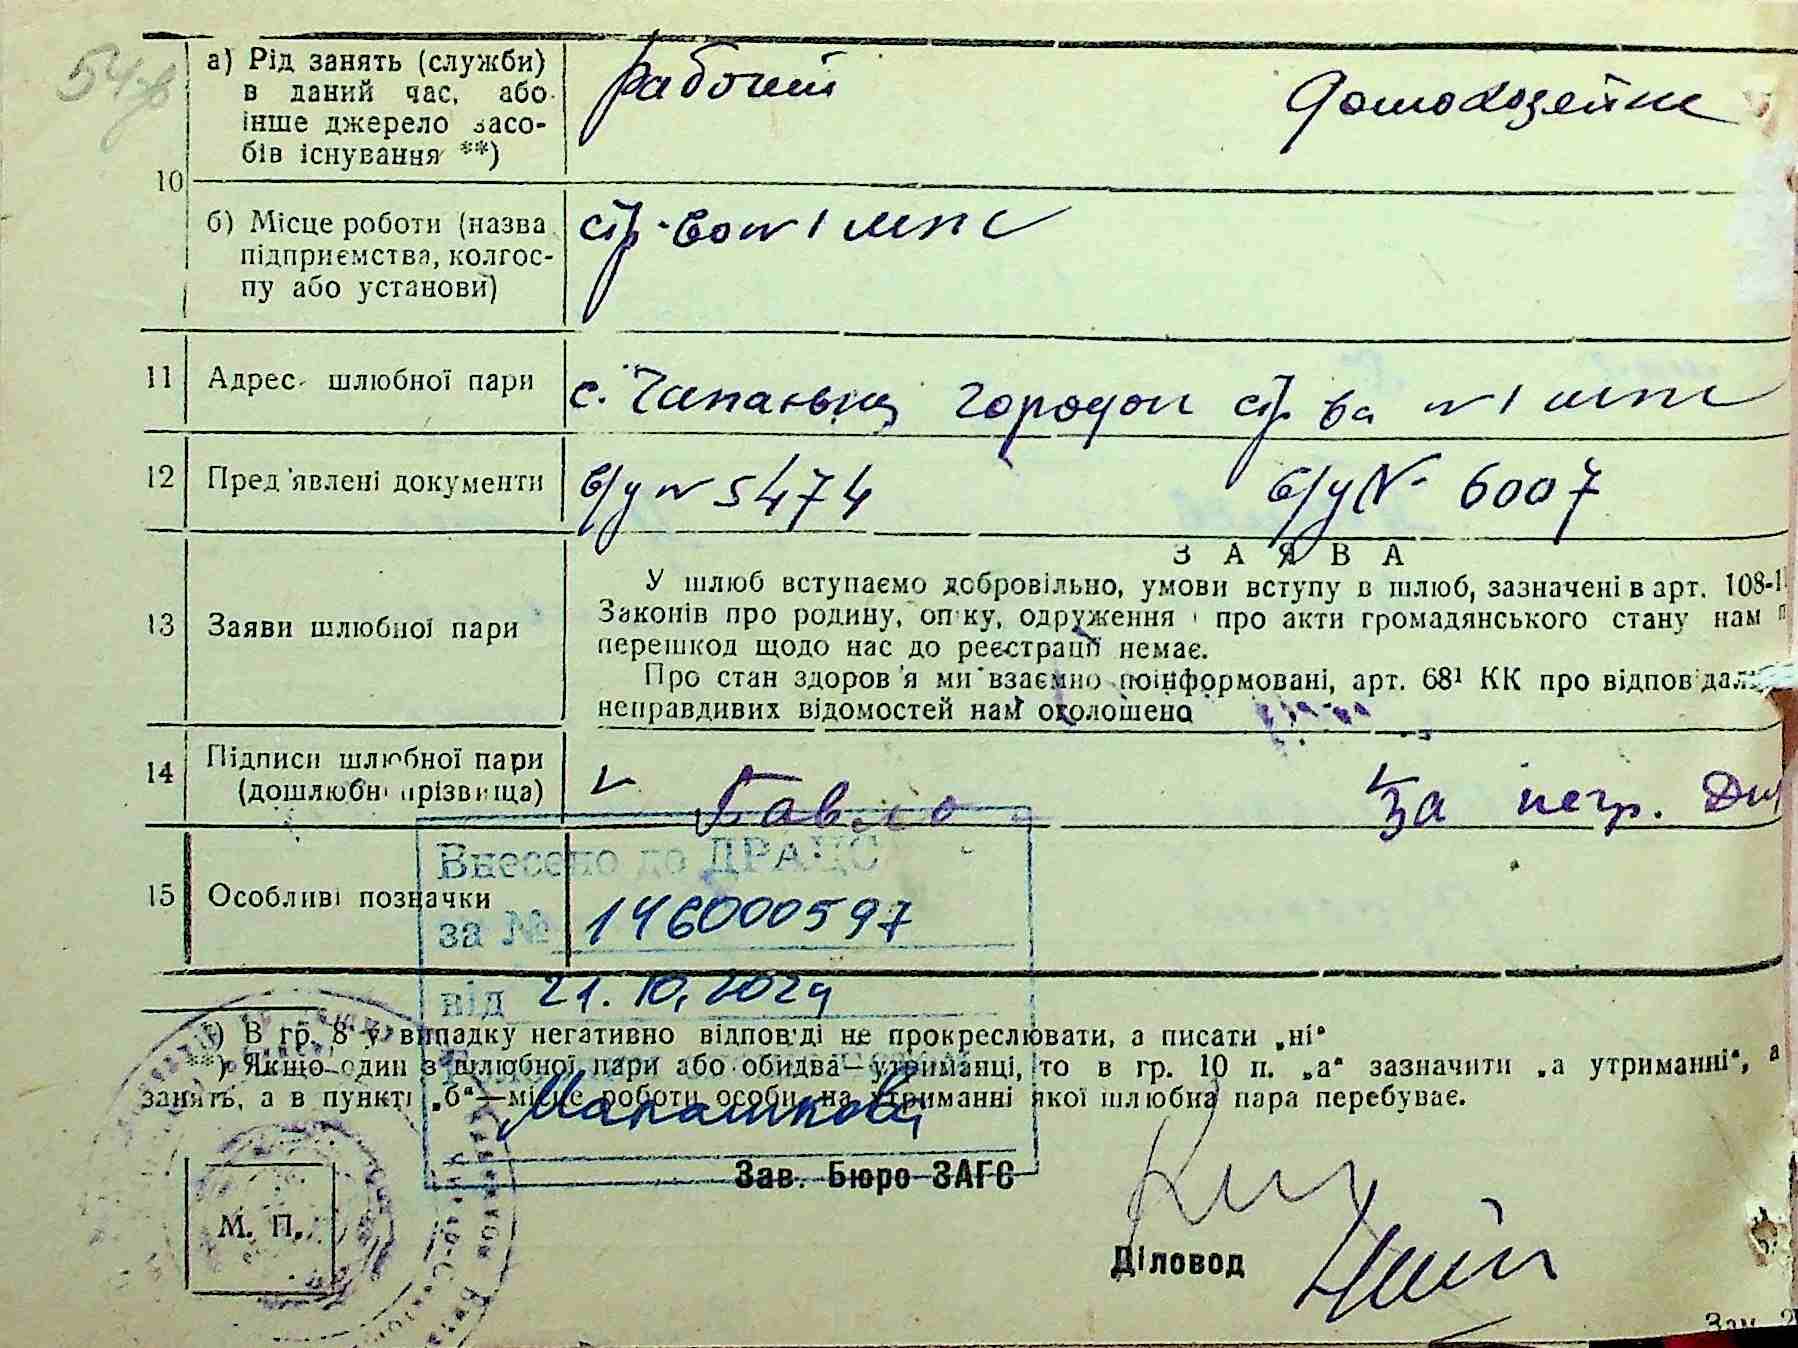 а) Рід занять (служби)
в даний час, або
інше джерело засо-
бів існування **)
рабочий
домохозяйка
10
б) Місце роботи (назва
підприємства, колгос-
пу або установи)
стр-во №1 МПС
11 Адрес шлюбної пари
с. городок стр-ва №1 МПС
12 Пред'явлені документи
в/у № 5474
в/у № 6007
З А Я В А
13 Заяви шлюбної пари
У шлюб вступаємо добровільно, умови вступу в шлюб, зазначені в арт. 108-1
Законів про родину, опіку, одруження і про акти громадянського стану нам
перешкод щодо нас до реєстрації немає.
Про стан здоров'я ми взаємно поінформовані, арт. 68¹ КК про відповідал
неправдивих відомостей нам оголошено
14 Підписи шлюбної пари
(дошлюбні прізвища)
За негр.
15 Особливі позначки
Внесено до ДРАЦС
за № 146000597
від 21.10.2024
*) В гр. 8 у випадку негативно відповіді не прокреслювати, а писати „ні“
**) Якщо один з шлюбної пари або обидва—утриманці, то в гр. 10 п. „а“ зазначити „а утриманні“, а
занять, а в пункті „б“—місце роботи особи, на утриманні якої шлюбна пара перебуває.
Зав. Бюро ЗАГС
М. П.
Діловод
Зам. 2